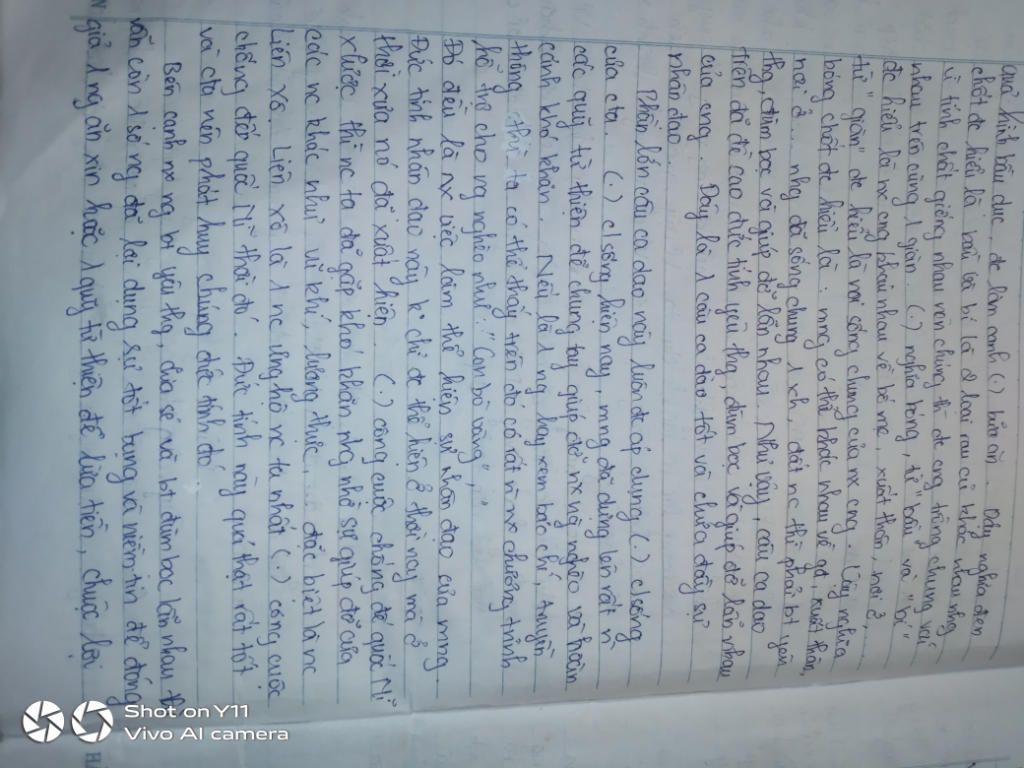 quả hình bầu dục, để làm canh (.) bữa ăn. Ở đây nghĩa đen
chất để hiểu là bầu và bí là 2 loại rau củ khác nhau nhg
vì tính chất giống nhau nên chúng thì để cng trồng chung với
nhau trên cùng 1 giàn. (.) nghĩa bóng, từ "bầu" và "bí"
để hiểu là nx cng khác nhau về bố mẹ, xuất thân, nơi ở,
từ "giàn" để hiểu là nơi sống chung của nx cng. Vậy nghĩa
bóng chất để hiểu là: mng có thể khác nhau về gđ, xuất thân,
nơi ở... nhg đã sống chung 1 xch, đất nc thì phải bt yêu
thg, đùm bọc và giúp đỡ lẫn nhau. Như vậy, câu ca dao
trên đã đề cao đức tính yêu thg, đùm bọc và giúp đỡ lẫn nhau
của cng. Đây là 1 câu ca dao tốt và chứa đầy sự
nhân đạo.
Phần lớn câu ca dao này luôn đc áp dụng (.) c/sống
của cta. (.) c/sống hiện nay, mng đã dựng lên rất n`
các quỹ từ thiện để chung tay giúp đỡ nx ng nghèo và hoàn
cảnh khó khăn. Nếu là 1 ng hay xem báo chí, truyền
thông thì ta có thể thấy trên đó có rất n` nx chương trình
hỗ trợ cho ng nghèo như: "Cặp lá
Đó đều là nx việc làm thể hiện sự nhân đạo của mng.
Đức tính nhân đạo này k chỉ đc thể hiện ở thời nay mà ở
thời xưa nó đã xuất hiện. (.) công cuộc chống đế quốc Mĩ
xlược thì nc ta đã gặp khó khăn nhg nhờ sự giúp đỡ của
các nc khác như vũ khí, lương thực,... đặc biệt là nc
Liên Xô. Liên Xô là 1 nc ủng hộ nc ta nhất (.) công cuộc
chống đế quốc Mĩ thời đó. Đức tính này quả thật rất tốt
và cta nên phát huy chúng đức tính đó.
Bên cạnh nx ng bt yêu thg, chia sẻ và bt đùm bọc lẫn nhau th
vẫn còn 1 số ng đã lợi dụng sự tốt bụng và niềm tin để đóng
giả 1 ng ăn xin hoặc 1 quỹ từ thiện để lừa tiền, chuộc lợi
Shot on Y11
Vivo AI camera